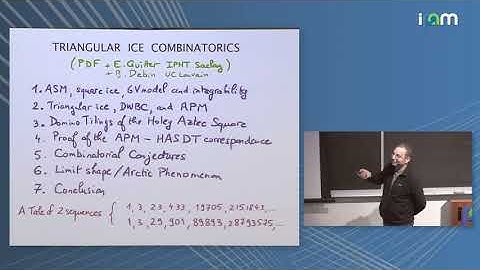 TRIANGULAR ICE COMBINATORICS
(PDF + E. Guitter IPHT Saclay)
+ B. Debin UC Louvain
1. ASM, square ice, 6V model and integrability
2. Triangular ice, DWBC, and APM
3. Domino Tilings of the Holey Aztec Square
4. Proof of the APM - HASDT correspondence
5 Combinatorial Conjectures
6. Limit shape / Arctic Phenomenon
7. Conclusion
A Tale of 2 sequences { 1, 3, 23, 433, 19705, 2151843, ...
1, 3, 29, 901, 89893, 28793575, ...